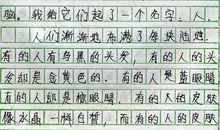 脑。我给它们起了一个名字，人。
人们渐渐地布满了每块陆地。
有的人有乌黑的头发，有的人的头
发却是金黄色的。有的人是蓝眼睛
有的人却是棕眼睛。有的人的皮肤
像水晶一样白皙，而有的人的皮肤